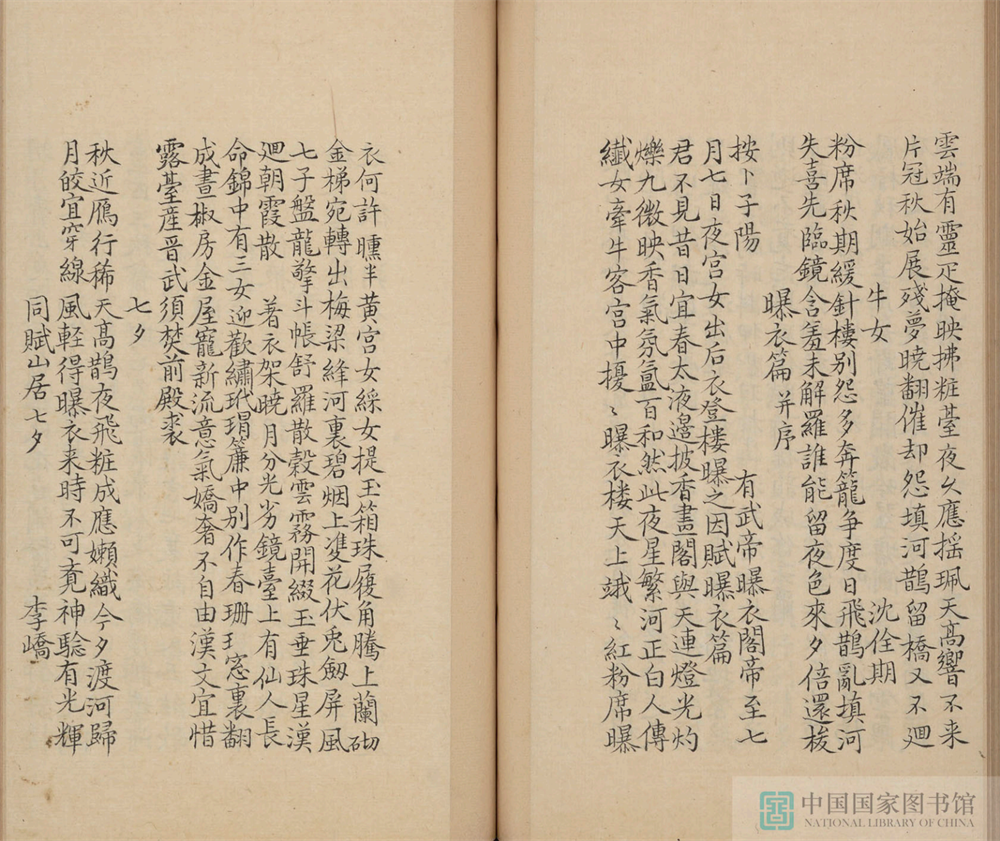 雲端有靈疋掩映拂粧臺夜久應揺珮天高響不来
片冠秋始展殘夢曉翻催却怨填河鵲留橋又不廻
牛女 沈佺期
粉席秋期緩針樓别怨多奔籠争度日飛鵲亂填河
失喜先臨鏡含羞未解羅誰能留夜色來夕倍還梭
曝衣篇 并序
按卜子陽 有武帝曝衣閣帝至七
月七日夜宫女出后衣登樓曝之因賦曝衣篇
君不見昔日宜春太液邉披香畫閣與天連燈光灼
爍九微映香氣氛氳百和然此夜星繁河正白人傳
織女牽牛客宫中擾〻曝衣楼天上娥〻紅粉席曝
衣何許曛半黄宫女綵女提玉箱珠履奔騰上蘭砌
金梯宛轉出梅梁絳河裏碧烟上雙花伏兎劔屏風
七子盤龍擎斗帳舒羅散縠雲霧開綴玉垂珠星漢
廻朝霞散 著衣架曉月分光劣鏡臺上有仙人長
命錦中有三女迎歡繡玳瑁簾中别作春珊瑚窓裏翻
成晝椒房金屋寵新流意氣嬌奢不自由漢文宜惜
露臺産晋武須焚前殿裘
七夕
秋近鴈行稀天高鵲夜飛粧成應嬾織今夕渡河歸
月皎宜穿線風軽得曝衣来時不可竟神驗有光輝
同賦山居七夕 李嶠
中国国家图书馆
NATIONAL LIBRARY OF CHINA